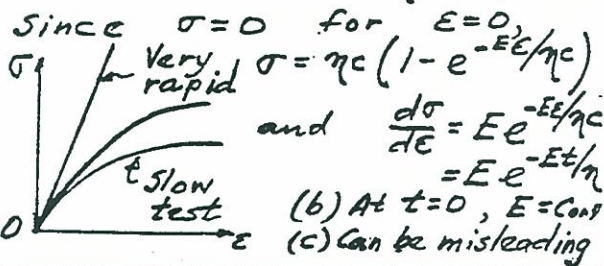 Since σ=0 for ε=0,
σ Very rapid σ = ηc (1 - e^{-Eε/ηc})
and dσ/dε = E e^{-Eε/ηc}
= E e^{-Et/η}
t Slow test
(b) At t=0, E=Con
0 ε (c) Can be misleading